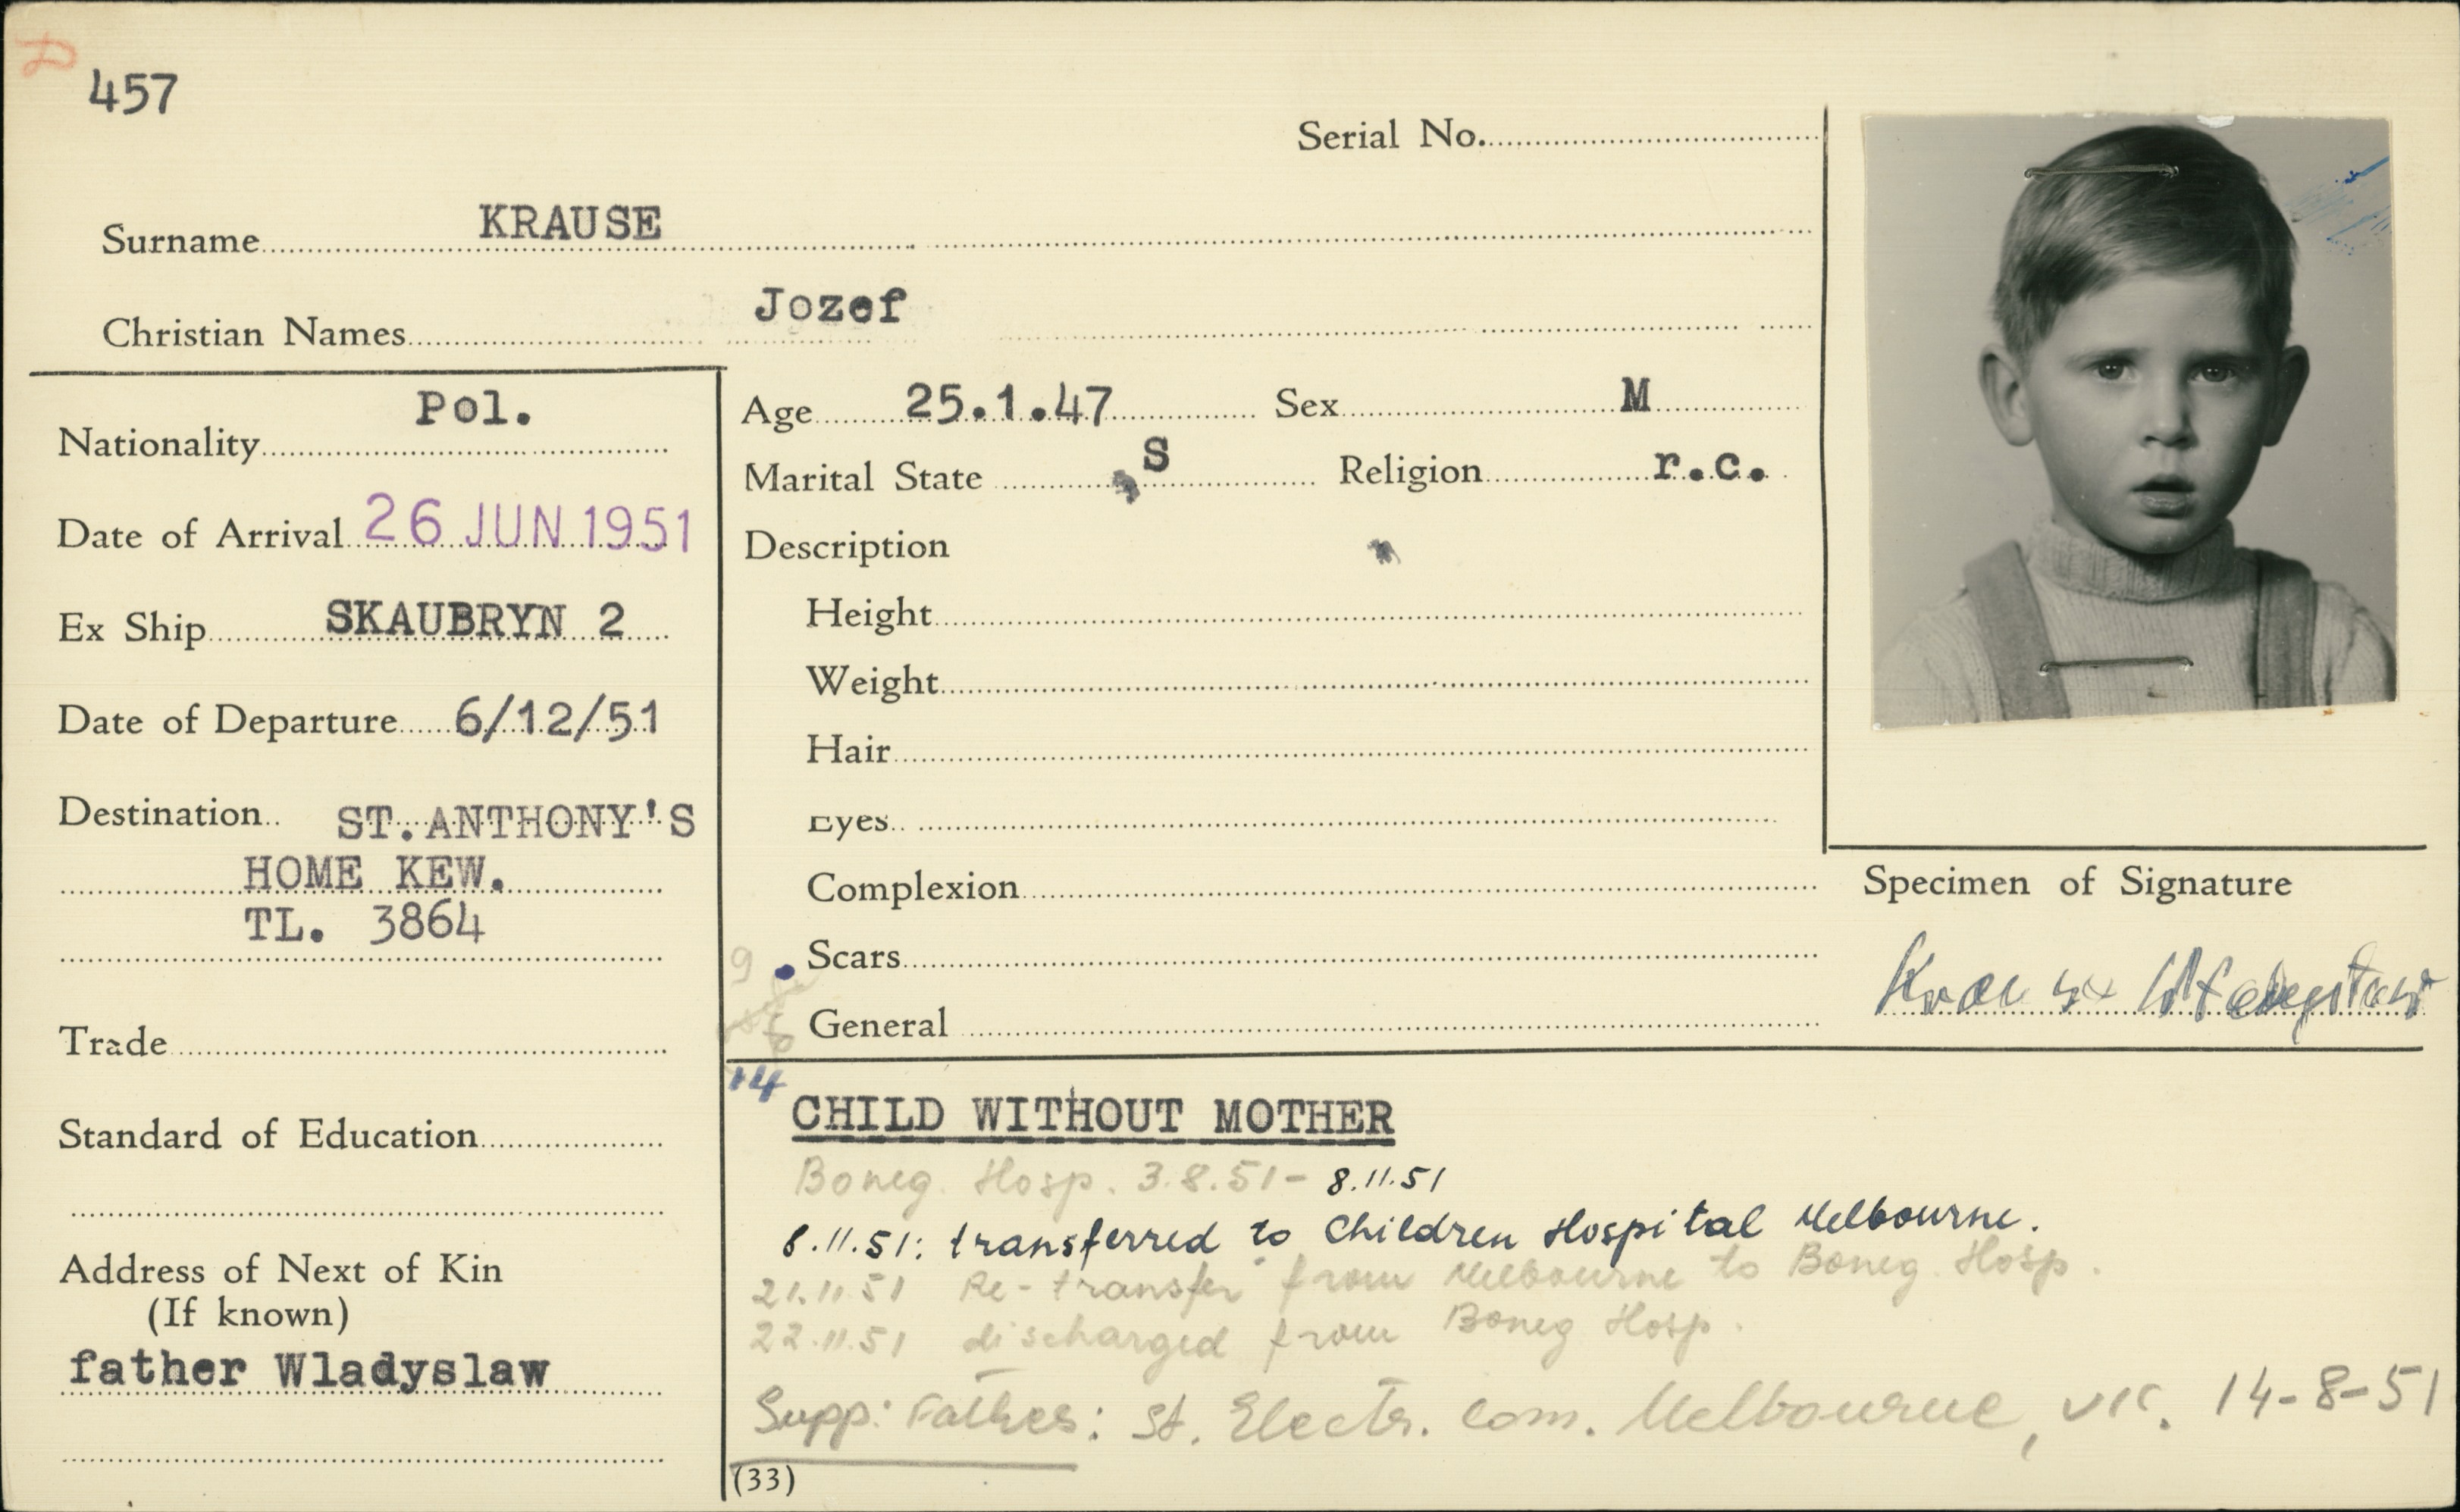 D
457
Serial No.
Surname KRAUSE
Christian Names Jozef
Nationality Pol.
Date of Arrival 26 JUN 1951
Ex Ship SKAUBRYN 2
Date of Departure 6/12/51
Destination ST. ANTHONY'S
HOME KEW.
TL. 3864
Trade
Standard of Education
Address of Next of Kin
(If known)
father Wladyslaw
Age 25.1.47 Sex M
Marital State S Religion r.c.
Description
Height
Weight
Hair
Eyes
Complexion
9
Scars
General
Specimen of Signature
14
CHILD WITHOUT MOTHER
Boneg. Hosp. 3.8.51 - 8.11.51
8.11.51: transferred to Children Hospital Melbourne.
21.11.51 Re-transfer from Melbourne to Boneg. Hosp.
22.11.51 discharged from Boneg Hosp.
Supp: Father: St. Electr. Com. Melbourne, VIC. 14-8-51
(33)